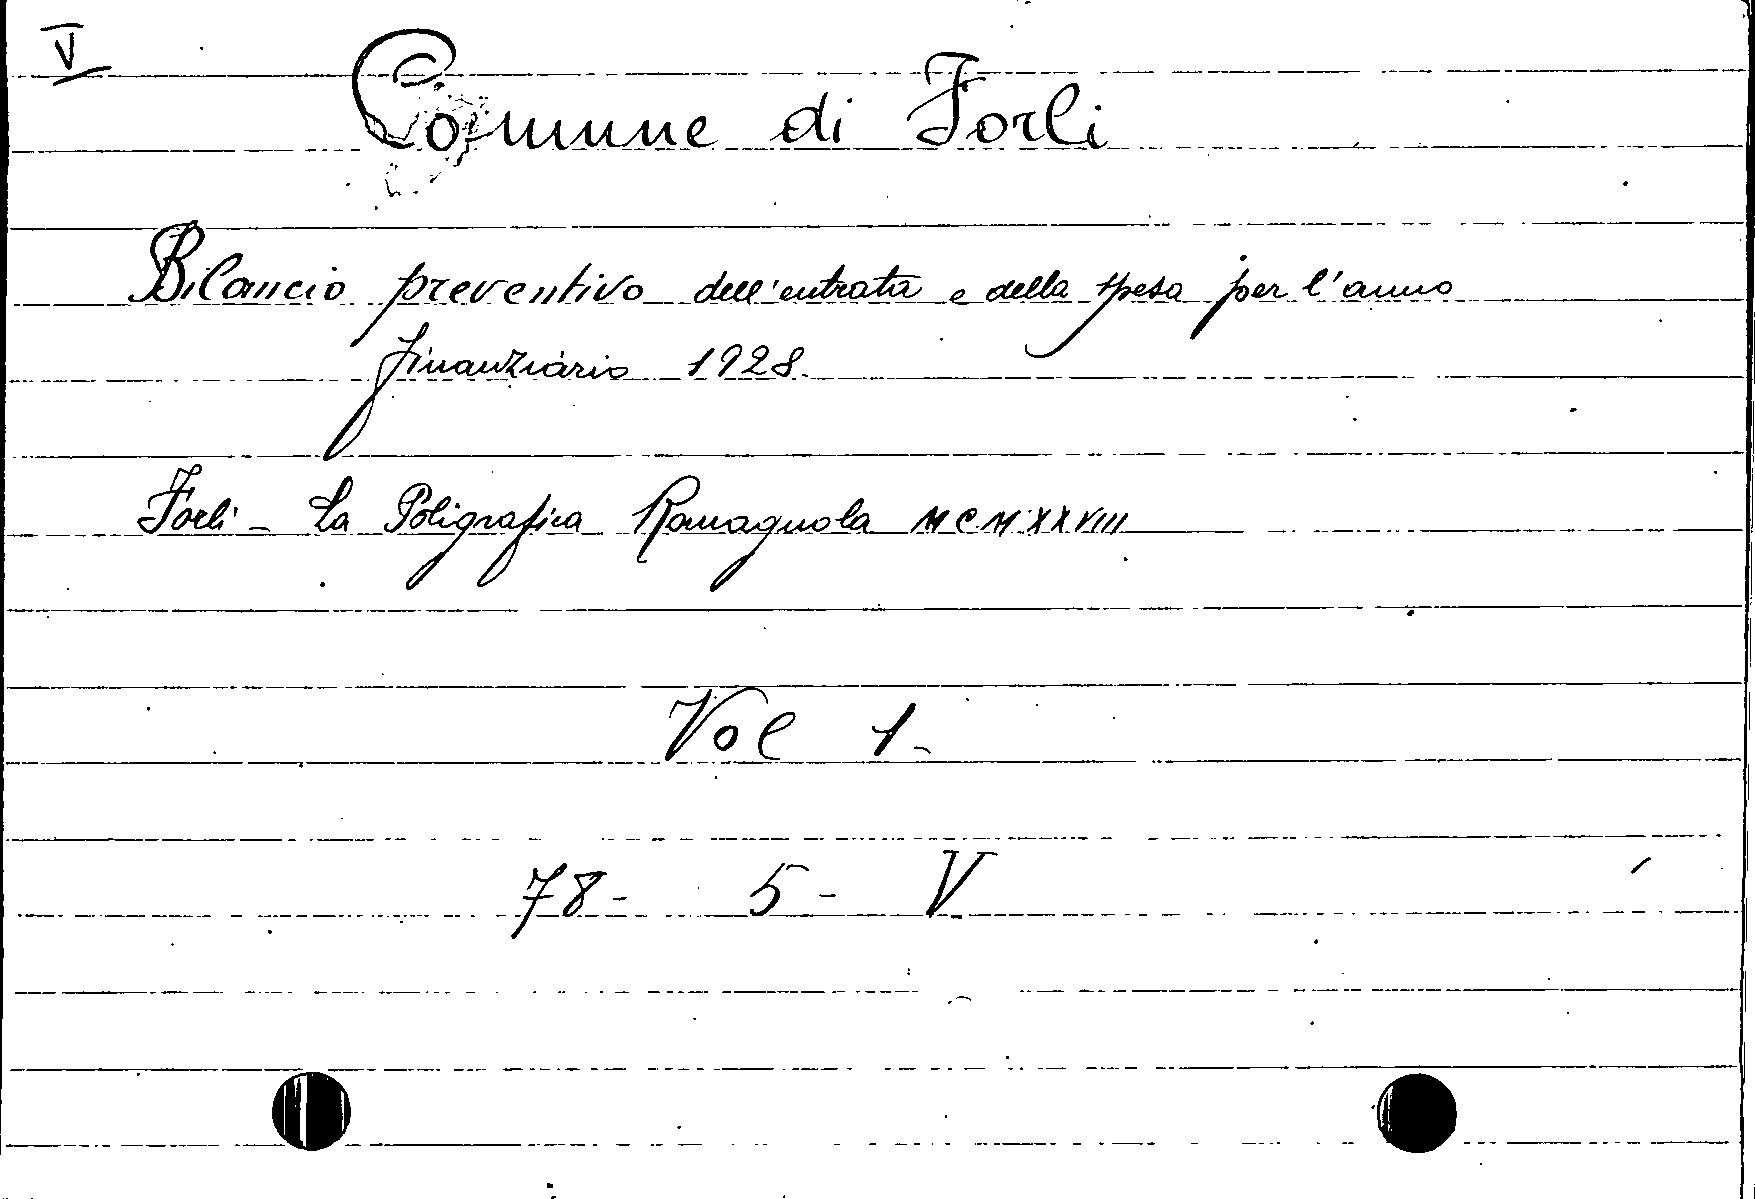 V
Comune di Forlì
Bilancio preventivo dell'entrata e della spesa per l'anno
finanziario 1928.
Forlì - La Poligrafica Romagnola MCMXXVIII
Vol 1.
78 - 5 - V